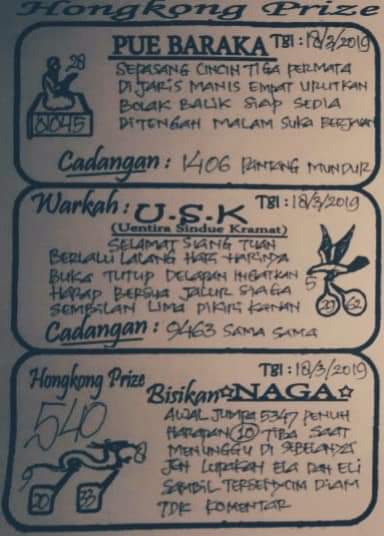 Hongkong Prize
PUE BARAKA Tgl : 18/3/2019
28
8045
SEPASANG CINCIN TIGA PERMATA
DI JARIS MANIS EMPAT URUTKAN
BOLAK BALIK SIAP SEDIA
DITENGAH MALAM SUKA BERJALAN
Cadangan : 1406 RINTANG MUNDUR
Warkah : U-S-K Tgl : 18/3/2019
(Uentira Sindue Kramat)
SELAMAT SIANG TUAN
BERLALU LALANG HARI HARINDA
BUKA TUTUP DELAPAN INGATKAN
HARAP BERSUA JALUR SIAGA
SEMBILAN LIMA PIKIRI KANAN
5
62
Cadangan : 9463 SAMA SAMA
Tgl : 18/3/2019
Hongkong Prize Bisikan NAGA
540
8
9
20 33
AWAL JUMPA 5347 PENUH
HARAPAN 10 TIBA SAAT
MENUNGGU DI
JGN LUPAKAN ELA DAN ELI
SAMBIL TERSENYUM DIAM
TDK KOMENTAR